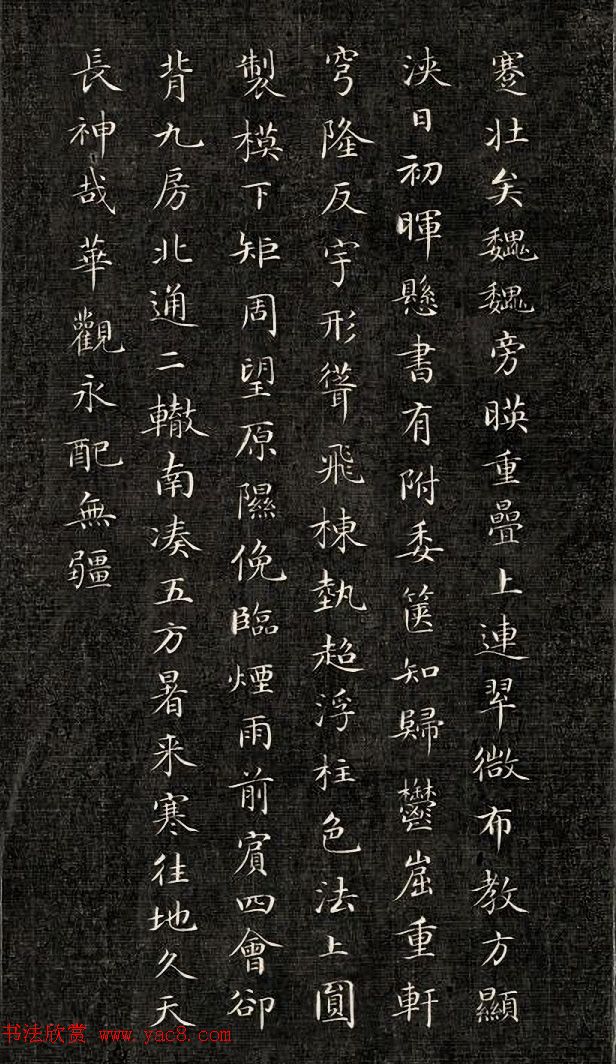 蹇壮矣魏魏旁暎重疊上連翠微布教方顯
浹日初暉懸書有附委篋知歸鬱崫重軒
穹隆反宇形聳飛棟埶超浮柱色法上圓
製模下矩周望原隰俛臨煙雨前賓四會卻
背九房北通二轍南凑五方暑来寒往地久天
長神哉華觀永配無疆
书法欣赏 www.yac8.com